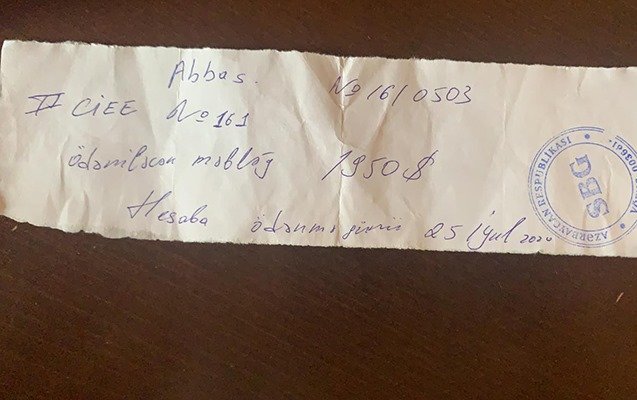 Abbas. № 16/0503
II CiEE № 161
Ödəniləcən məbləğ 1950 $
Hesaba ödənmə günü 25 iyul 2020
AZƏRBAYCAN RESPUBLİKASI
SBG